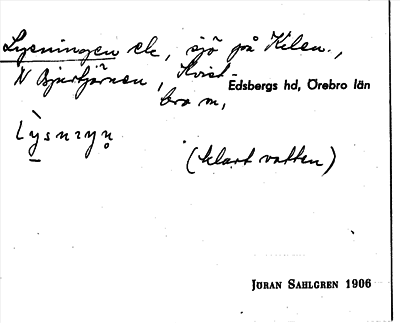 Lysningen ek, sjö på Kilen.,
N Björtjärnen, Kvist-
bro m,
Edsbergs hd, Örebro län
(klart vatten)
JÖRAN SAHLGREN 1906